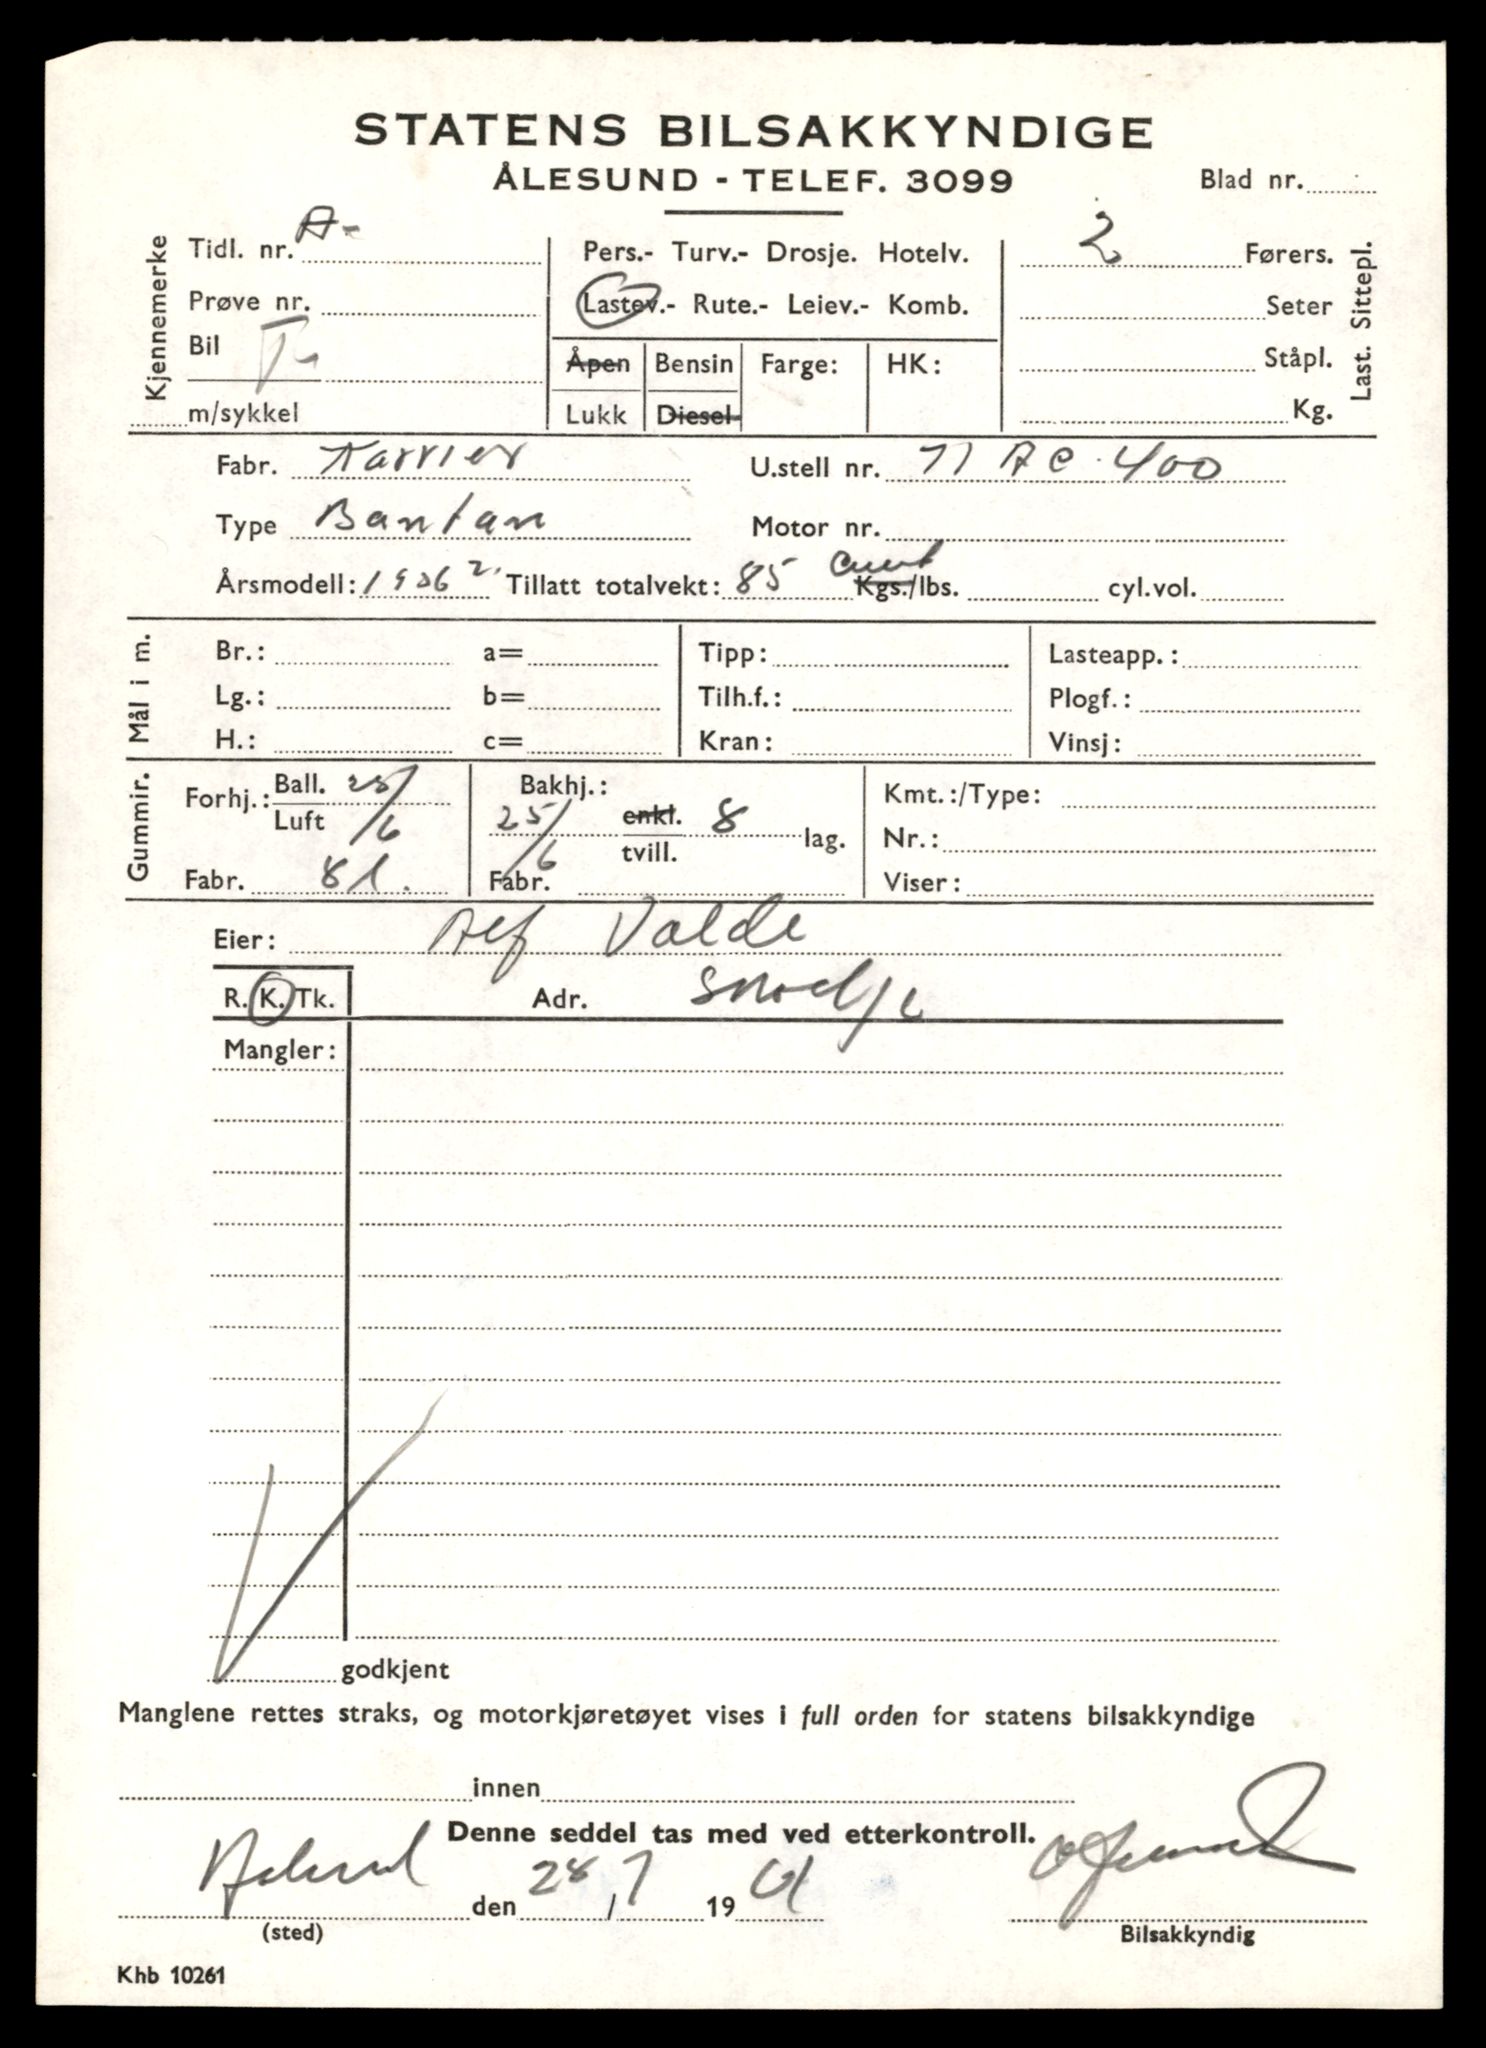 STATENS BILSAKKYNDIGE
ÅLESUND - TELEF. 3099
Blad nr.
Kjennemerke
Tidl. nr. A-
Prøve nr.
Bil T-
m/sykkel
Pers.- Turv.- Drosje. Hotelv.
Lastev.- Rute.- Leiev.- Komb.
Åpen Bensin Farge: HK:
Lukk Diesel
2 Førers.
Seter
Ståpl.
Kg.
Last. Sittepl.
Fabr. Karrier U.stell nr. 71 AC. 400
Type Bantam Motor nr.
Årsmodell: Tillatt totalvekt: 85 Kgs./lbs. cyl.vol.
Mål i m.
Br.: a= Tipp: Lasteapp.:
Lg.: b= Tilh.f.: Plogf.:
H.: c= Kran: Vinsj:
Gummir.
Forhj.: Ball. 25/6 Bakhj.: Kmt.:/Type:
Luft 25/6 enkl. 8 lag. Nr.:
tvill.
Fabr. 8 l. Fabr. Viser:
Eier: Alf Valde
R. K. Tk. Adr. Skodje
Mangler:
godkjent
Manglene rettes straks, og motorkjøretøyet vises i full orden for statens bilsakkyndige
innen
Denne seddel tas med ved etterkontroll.
Ålesund den 28/7 1961
(sted) Bilsakkyndig
Khb 10261